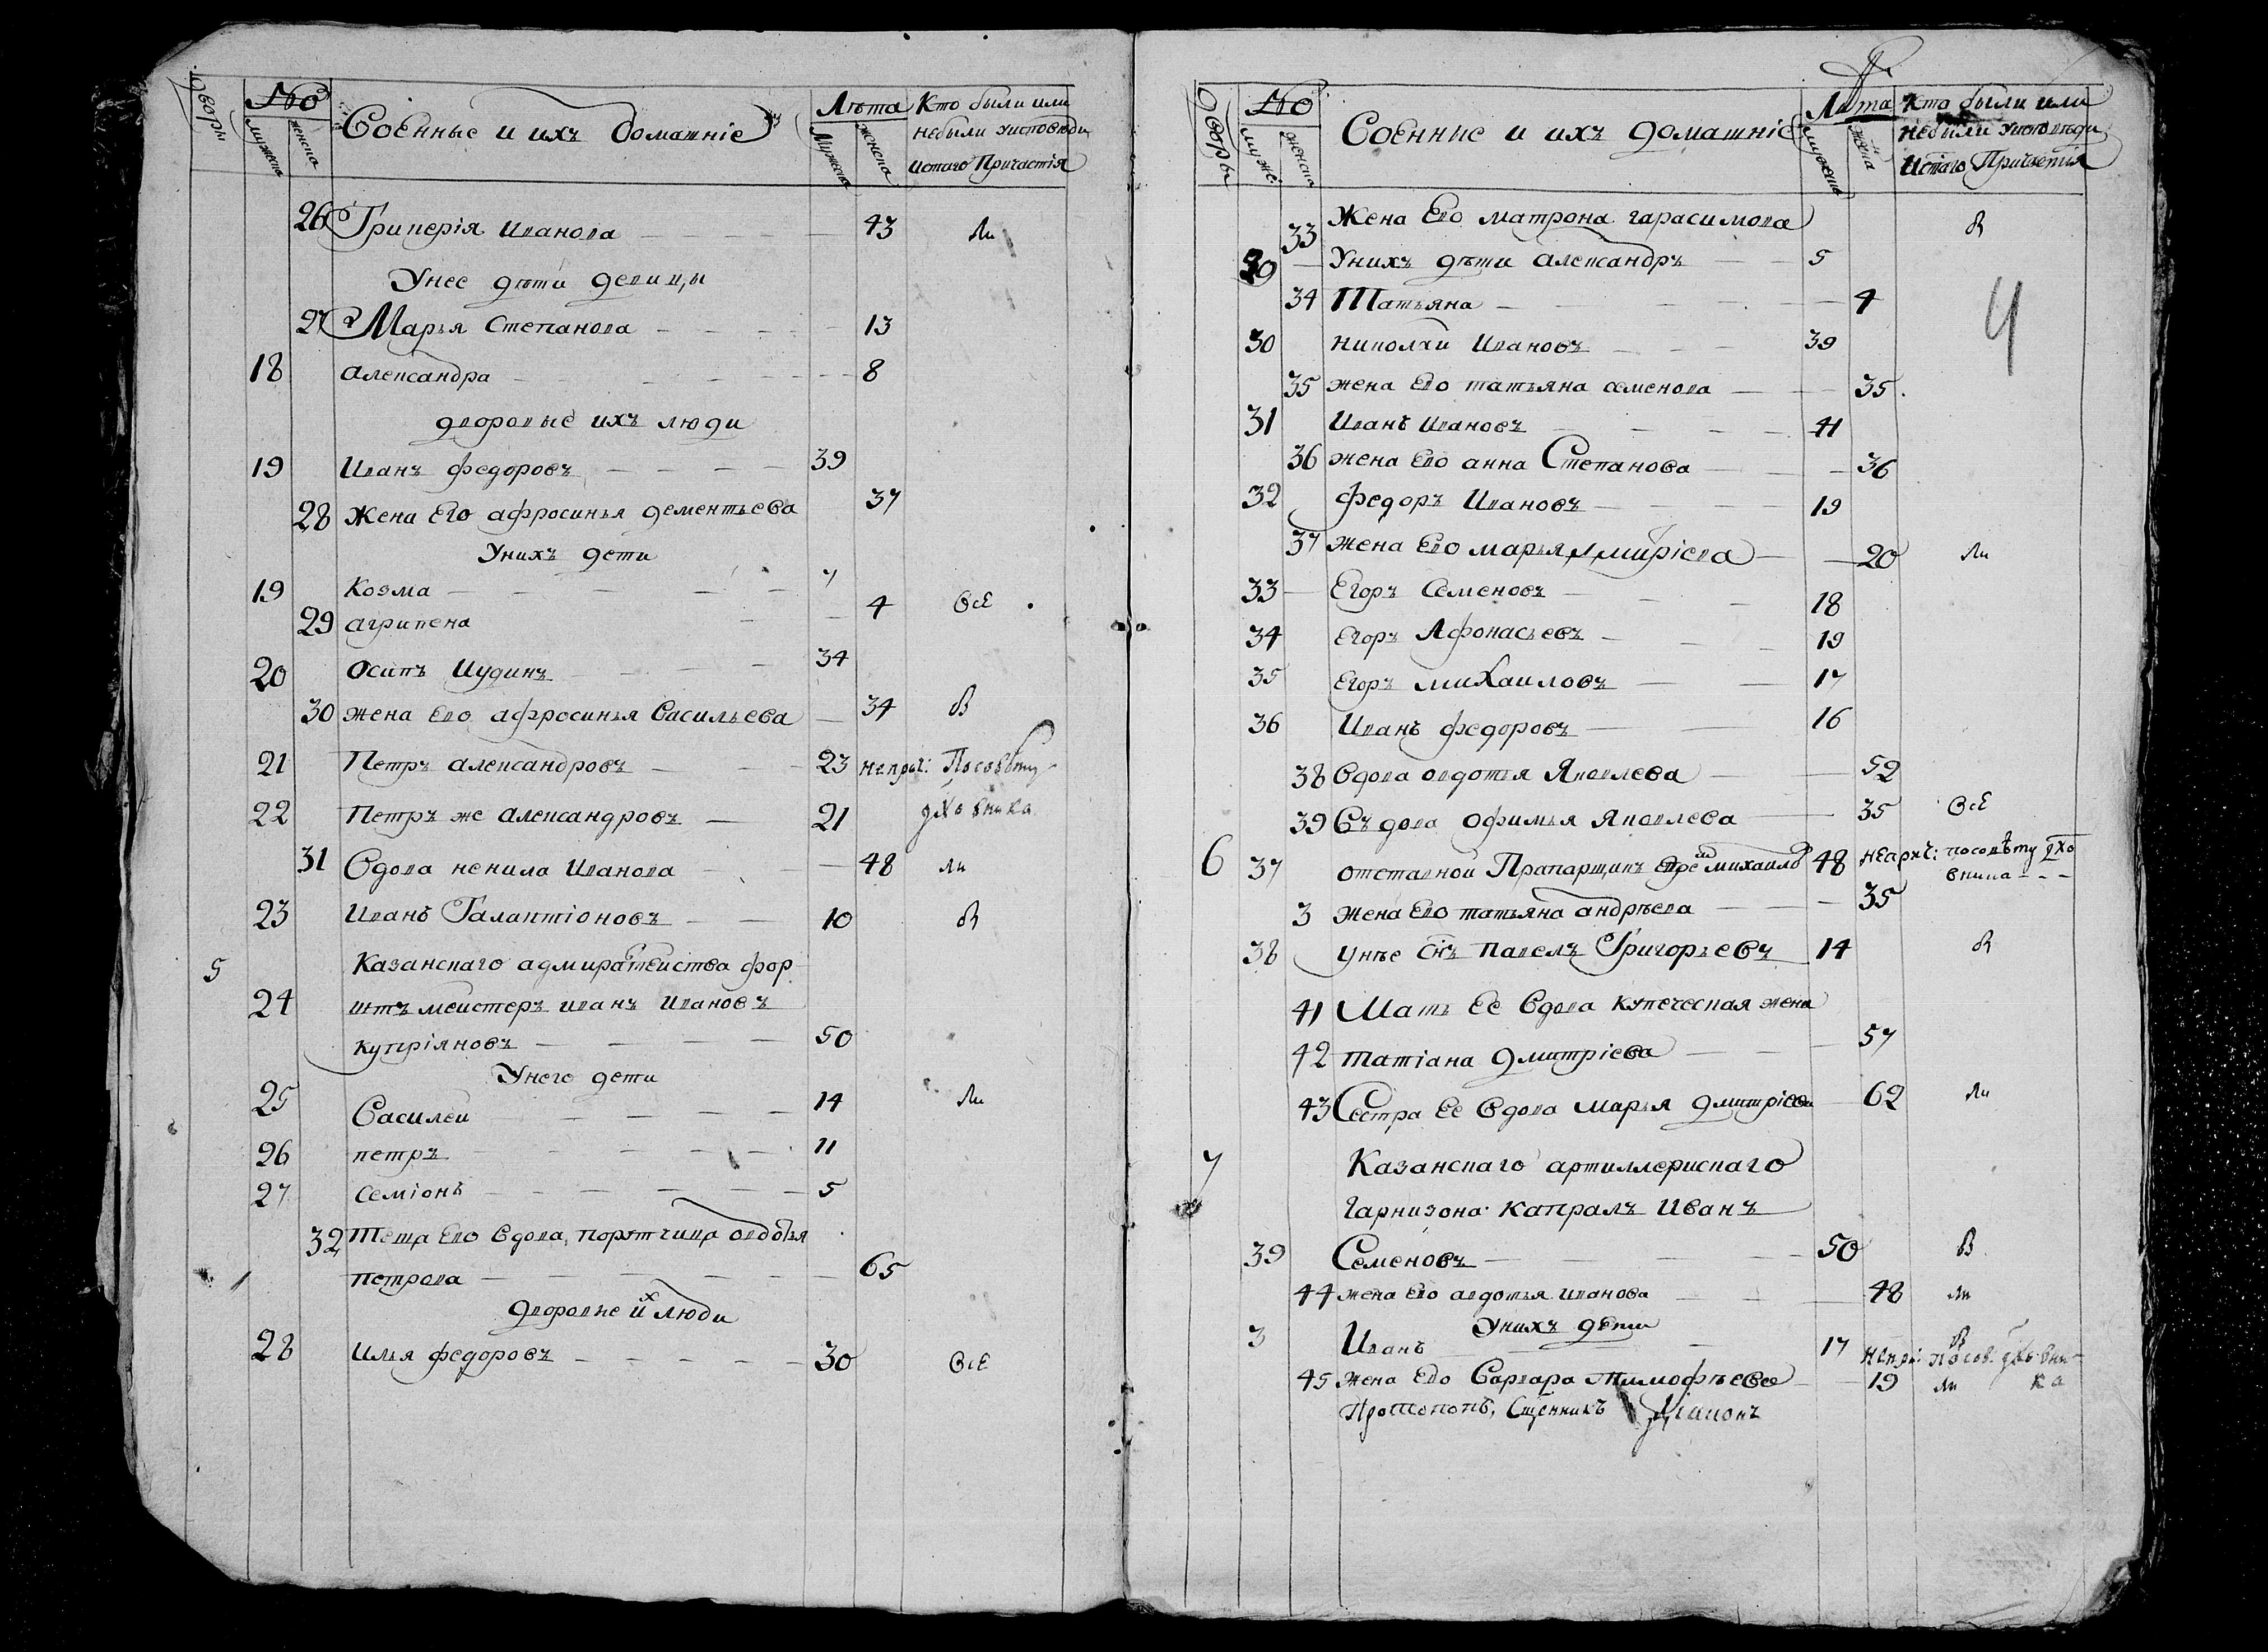 Дворы № Лѣта Кто были или
мужеска женска Военные и ихъ домашніе Мужеска женска небыли уисповѣди
истаго Причастія
26 Гликерія иванова 43 ли
Унее дѣти девицы
27 Марья Степанова 13
18 александра 8
дворовые ихъ люди
19 иванъ федоровъ 39
28 Жена Его афросинья дементьева 37
Унихъ дети
19 Козма 7
29 агрипена 4 Всѣ
20 осипъ Иудинъ 34
30 жена Его афросинья Васильева 34 В
21 Петръ александровъ 23 неприч: Посовѣту
22 Петръ же александровъ 21 дховника
31 Вдова ненила Иванова 48 ли
23 Иванъ Галактіоновъ 10 В
5 Казанскаго адмиралтеиства фор
24 штъмеистеръ иванъ ивановъ
купріяновъ 50
Унего дети
25 Василеи 14 ли
26 петръ 11
27 семіонъ 5
32 теща Его Вдова, порутчица овдотья
петрова 65
дворовые ихъ люди
28 илья федоровъ 30 Всѣ
Дворы № Лѣта Кто были или
муже: женска Военные и ихъ домашніе мужеска женска небыли уисповѣди
истаго Причастія
33 Жена Его матрона гарасимова В
29 Унихъ дѣти александръ 5
34 Татьяна 4
4
30 николаи Ивановъ 39
35 жена Его татьяна семенова 35
31 Иванъ ивановъ 41
36 жена Его анна Степанова 36
32 федоръ Ивановъ 19
37 жена Его марья дмитріева 20 ли
33 Егоръ Семеновъ 18
34 Егоръ Афонасьевъ 19
35 Егоръ михаиловъ 17
36 Иванъ федоровъ 16
38 Вдова овдотья Яковлева 52
39 Въдова офимья Яковлева 35 Всѣ
6 37 отставнои Прапарщикъ михаило 48 неприч: посовѣту дхо
вника
3 жена Его татьяна андрѣева 35
38 унѣе снъ павелъ Григорьевъ 14 В
41 Мать Ее Вдова купеческая жена
42 татіана дмитріева 57
43 Сестра Ее Вдова марья дмитріева 62 ли
7 Казанскаго артиллерискаго
гарнизона капралъ Иванъ
39 Семеновъ 50 В
44 жена Его авдотья иванова 48 ли
Унихъ дѣти
3 Иванъ 17 В непри: посов. дховни
45 жена Его Варвара тимофѣева 19 ли ка
Протопопъ, Сщенникъ